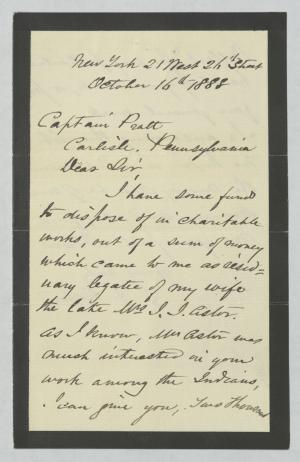 New York 21 West 26th Street
October 16th 1888
Captain Pratt
Carlisle, Pennsylvania
Dear Sir,
I have some funds
to dispose of in charitable
works, out of a sum of money
which came to me as resid-
uary legatee of my wife
the late Mrs J. J. Astor.
As I know, Mrs Astor was
much interested in your
work among the Indians,
I can give you, Two Thousand